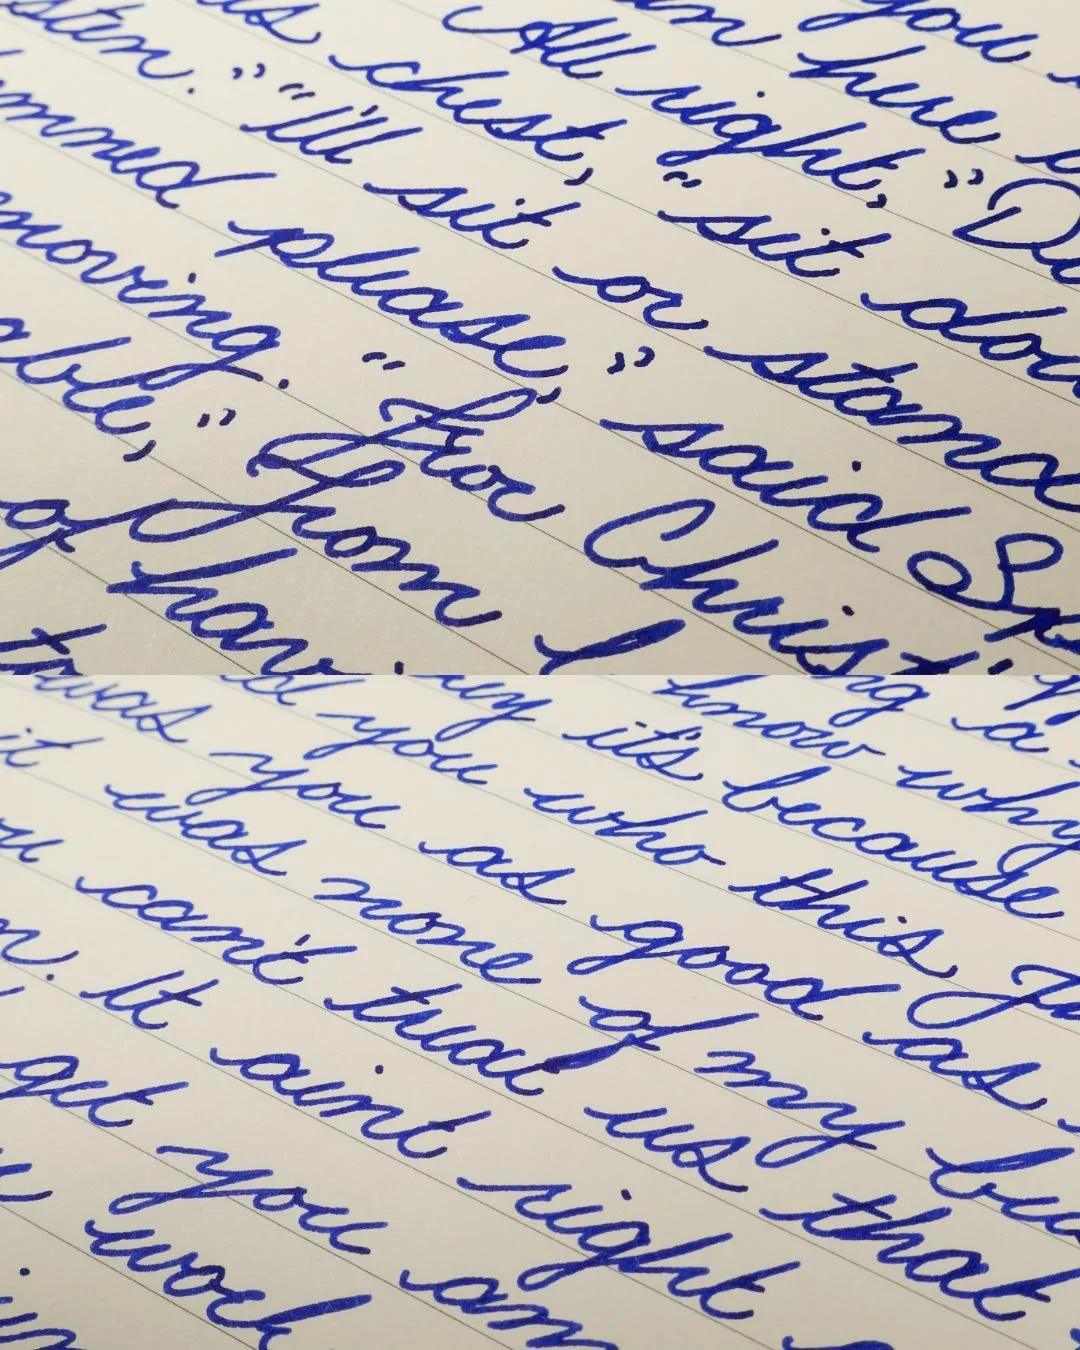 you
here
All right," "D
chest, "sit dow
sten." "I'll sit or stand
mmed please," said Sp
moving. "For Christ'
able," from
of havi
to
ng a
know why
it's because
you who this Ju
was you as good as
it was none of my bu
can't treat us that
n. It aint right
get you an
work